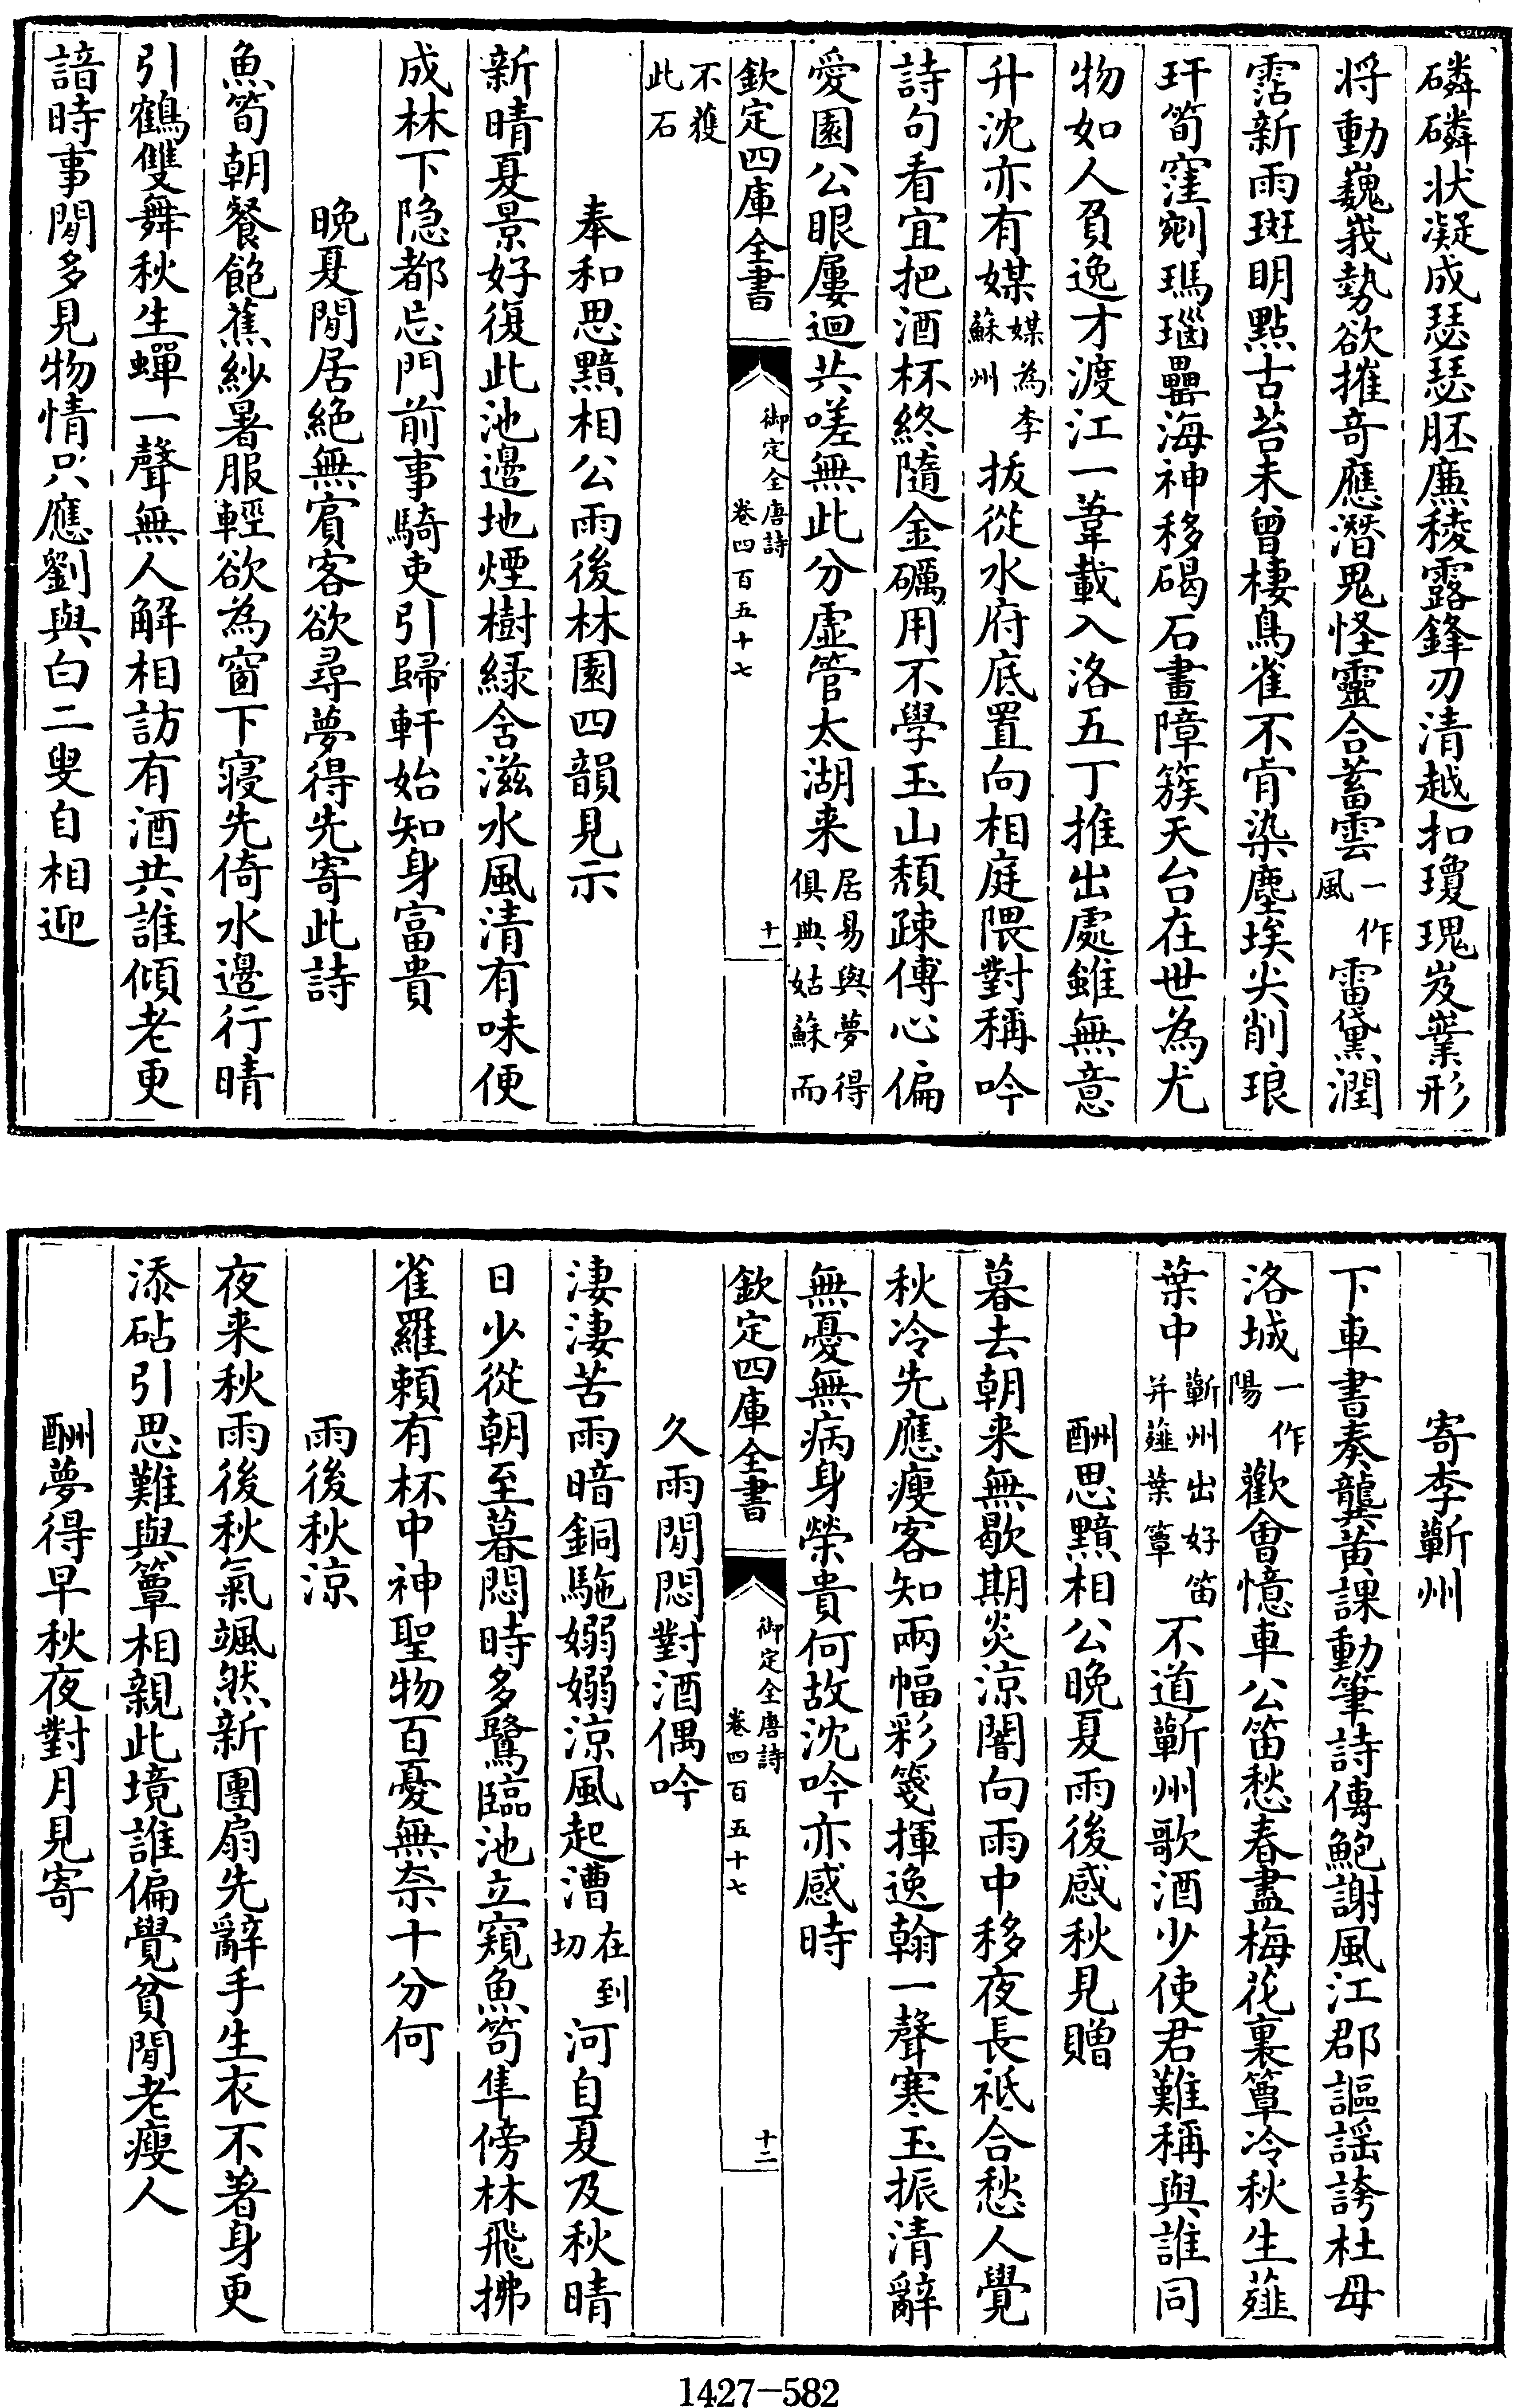 磷磷狀凝成瑟瑟胚廉稜露鋒刃清越扣瓊瑰岌嶪形
将動巍峩勢欲摧奇應潛鬼怪靈合蓄雲一作風雷黛潤
霑新雨斑明點古苔未曾棲鳥雀不肯染塵埃尖削琅
玕筍窪剜瑪瑙罍海神移碣石畫障簇天台在世為尤
物如人負逸才渡江一葦載入洛五丁推出處雖無意
升沈亦有媒媒為李蘇州拔從水府底置向相庭隈對稱吟
詩句看宜把酒杯終隨金礪用不學玉山頹疎傅心偏
愛園公眼屢迴共嗟無此分虛管太湖来居易與夢得俱典姑蘇而
欽定四庫全書
御定全唐詩
卷四百五十七
十一
不獲此石
奉和思黯相公雨後林園四韻見示
新晴夏景好復此池邊地煙樹緑含滋水風清有味便
成林下隐都忘門前事騎吏引歸軒始知身富貴
晩夏閒居絶無賔客欲尋夢得先寄此詩
魚筍朝餐飽蕉紗暑服輕欲為窗下寢先倚水邊行晴
引鶴雙舞秋生蟬一聲無人解相訪有酒共誰傾老更
諳時事閒多見物情只應劉與白二叟自相迎
寄李蘄州
下車書奏龔黄課動筆詩傳鮑謝風江郡謳謡誇杜母
洛城一作陽歡會憶車公笛愁春盡梅花裏簟冷秋生薤
葉中蘄州出好笛并薤葉簟不道蘄州歌酒少使君難稱與誰同
酬思黯相公晩夏雨後感秋見贈
暮去朝来無歇期炎涼闇向雨中移夜長祗合愁人覺
秋冷先應瘦客知兩幅彩箋揮逸翰一聲寒玉振清辭
無憂無病身榮貴何故沈吟亦感時
欽定四庫全書
御定全唐詩
卷四百五十七
十二
久雨閒悶對酒偶吟
淒淒苦雨暗銅駞嫋嫋涼風起漕在到切河自夏及秋晴
日少從朝至暮悶時多鷺臨池立窺魚笱隼傍林飛拂
雀羅頼有杯中神聖物百憂無奈十分何
雨後秋涼
夜来秋雨後秋氣颯然新團扇先辭手生衣不著身更
添砧引思難與簟相親此境誰偏覺貧閒老瘦人
酬夢得早秋夜對月見寄
1427—582